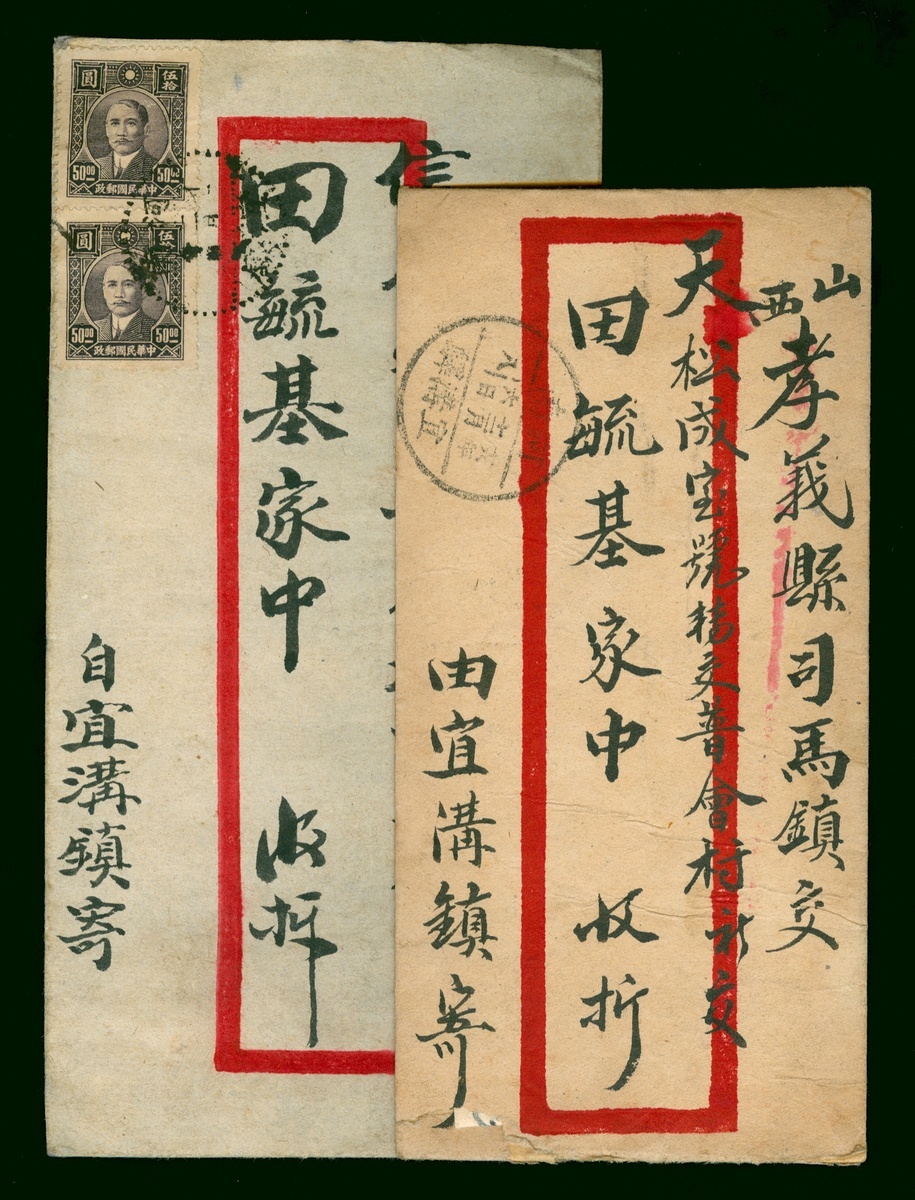 山西孝義縣司馬鎮交
天松成宝號轉交普會村祈交
田毓基家中 收拆
由宜溝鎮寄
田毓基家中 收拆
自宜溝鎮寄
圓 伍拾
50.00 50.00
中華民國郵政
圓 伍拾
50.00 50.00
中華民國郵政
宜溝鎮